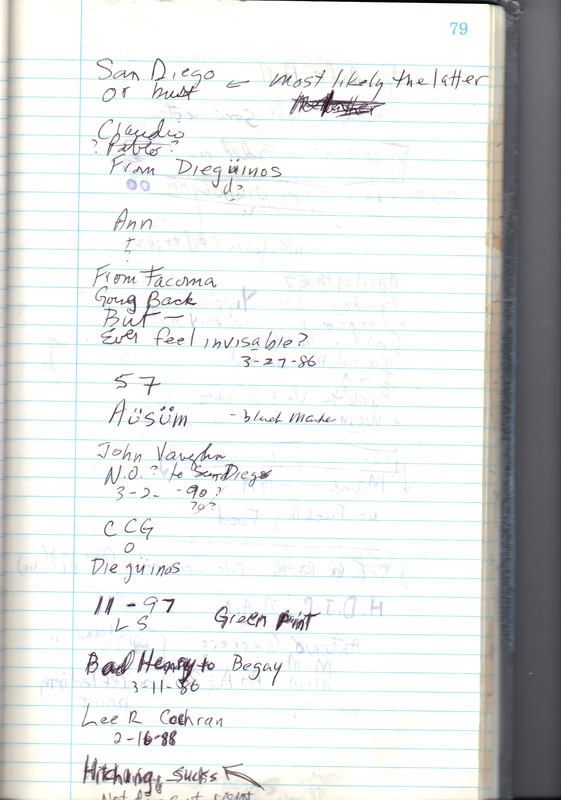 79
San Diego ← most likely the latter
or bust
Claudio
? Pablo ?
From Diegüinos
d?
Ann
?
From Tacoma
Going Back
But —
Ever feel invisable?
3-27-86
57
Aüsüm - black marker
John Vaughn
N.O. ? to San Diego
3-2- -90?
70?
CCG
O
Diegüinos
11-97
LS Green Paint
Bad Henry to Begay
3-11-86
Lee R Cochran
2-16-88
Hitching sucks